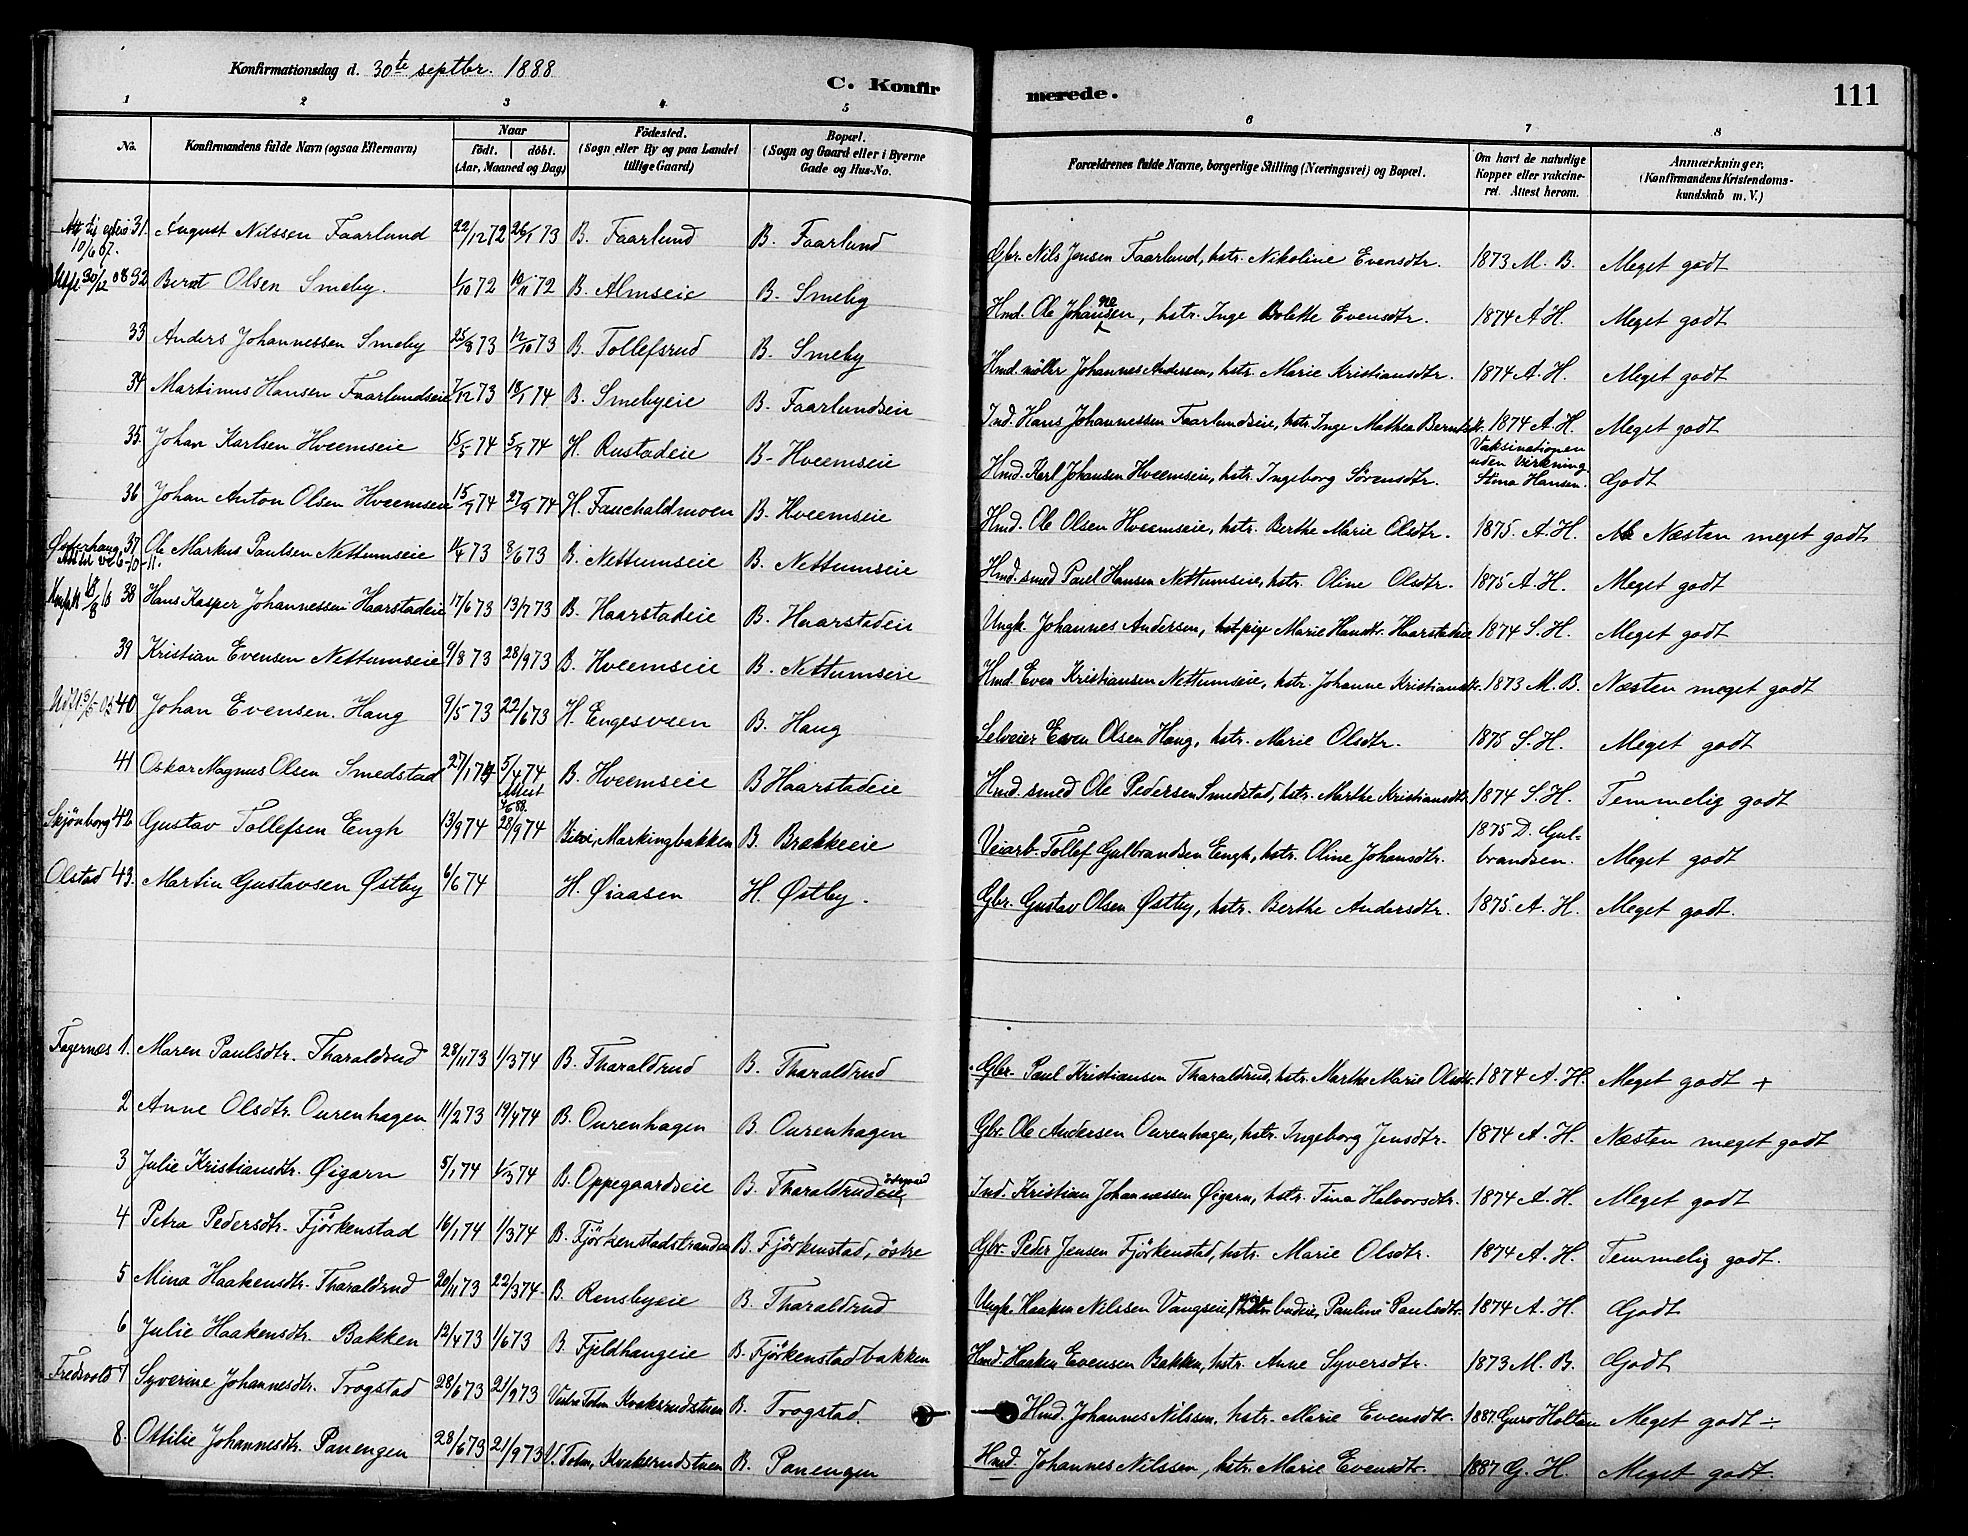 Konfirmationsdag d. 30te septbr. 1888
C. Konfirmerede.
111
1 2 3 4 5 6 7 8
No. Konfirmandens fulde Navn (ogsaa Efternavn) Naar födt. döbt. (Aar, Maaned og Dag) Födested. (Sogn eller By og paa Landet tillige Gaard) Bopæl. (Sogn og Gaard eller i Byerne Gade og Hus-No. Forældrenes fulde Navne, borgerlige Stilling (Næringsvei) og Bopæl. Om havt de naturlige Kopper eller vakcineret. Attest herom. Anmærkninger, (Konfirmandens Kristendomskundskab m. V.)
10/6 07. 31. August Nilssen Faarlund 22/12 72 26/1 73 B. Faarlund B. Faarlund Gbr. Nils Jensen Faarlund, hstr. Nikoline Evensdtr. 1873 M. B. Meget godt
30/12 08 32 Bernt Olsen Smeby. 1/10 72 10/11 72 B. Almseie B. Smeby Hmd. Ole Johannesen, hstr. Inge Bolette Evensdtr. 1874 A. H. Meget godt
33 Anders Johannessen Smeby 25/8 73 12/10 73 B. Tollefsrud B. Smeby Hmd. möller Johannes Andersen, hstr. Marie Kristiansdtr. 1874 A. H. Meget godt
34 Martinus Hansen Faarlundseie 7/12 73 18/1 74 B. Smebyeie B. Faarlundseie Ind. Hans Johannessen Faarlundseie, hstr. Inge Mathea Berntsdtr. 1874 A. H. Meget godt
35. Johan Karlsen Hveemseie 15/5 74 5/7 74 H. Rustadeie B. Hveemseie Hmd. Karl Johansen Hveemseie, hstr. Ingeborg Sörensdtr. Vaksinationen uden virkning. Stina Hansen. Godt
36 Johan Anton Olsen Hveemseie 15/7 74 27/9 74 H. Fauchaldmoen B. Hveemseie Hmd. Ole Olsen Hveemseie, hstr. Berthe Marie Olsdtr. 1875. A. H. Næsten meget godt
Østerhaug 6-10-11. 37 Ole Markus Paulsen Nettumseie 11/4 73 8/6 73 B. Nettumseie B. Nettumseie Hmd. smed Paul Hansen Nettumseie, hstr. Oline Olsdtr. 1875 A. H. Meget godt
38 Hans Kasper Johannessen Haarstadeie 17/6 73 13/7 73 B. Haarstadeie B. Haarstadeie Ungk. Johannes Andersen, pige Marie Hansdtr. Haarstadeie 1874 S. H. Meget godt
39 Kristian Evensen Nettumseie 9/8 73 28/9 73 B. Hveemseie B. Nettumseie Hmd. Even Kristiansen Nettumseie, hstr. Johanne Kristiansdtr. 1873 M. B. Næsten meget godt
40 Johan Evensen Haug 9/5 73 22/6 73 H. Engesveen B. Haug Selveier Even Olsen Haug, hstr. Marie Olsdtr. 1875 S. H. Meget godt
41 Oskar Magnus Olsen Smedstad 27/1 74 5/4 74 B. Hveemseie B Haarstadeie Hmd. smed Ole Pedersen Smedstad, hstr. Marthe Kristiansdtr. 1874 S. H. Temmelig godt
Skjönborg 42 Gustav Tollefsen Engh 13/9 74 Attest 28/9 74 Biri, Markingbakken B. Brækkeeie Veiarb. Tollef Gulbrandsen Engh, hstr. Oline Johansdtr. 1875 D. Gulbrandsen. Meget godt
Olstad 43. Martin Gustavsen Østby 6/6 74 H. Øiaasen H. Østby. Gbr. Gustav Olsen Østby, hstr. Berthe Andersdtr. 1875. A. H. Meget godt.
Fagernæs 1. Maren Paulsdtr. Tharaldrud 28/11 73 1/3 74 B. Tharaldrud B. Tharaldrud Gbr. Paul Kristiansen Tharaldrud, hstr. Marthe Marie Olsdtr. 1874 A. H. Meget godt +
2 Anne Olsdtr. Ourenhagen 11/2 73 19/4 74 B. Ourenhagen B. Ourenhagen Gbr. Ole Andersen Ourenhagen, hstr. Ingeborg Jensdtr. 1874 A. H. Næsten meget godt
3 Julie Kristiansdtr. Øigarn 5/1 74 1/3 74 B. Oppegaardseie B. Tharaldrudeie Ind. Kristian Johannessen Øigarn, hstr. Tina Halvorsdtr. 1874 A. H. Meget godt
4 Petra Pedersdtr. Fjörkenstad 16/1 74 1/3 74 B. Fjörkenstadstranden B. Fjörkenstad, östre Gbr. Peder Jensen Fjörkenstad, hstr. Marie Olsdtr. 1874 A. H. Temmelig godt.
5 Mina Haakensdtr. Tharaldrud 20/11 73 22/3 74 B. Rensbyeie B. Tharaldrud Ungk. Haaken Nilssen Vangseie, budeie, Pauline Paulsdtr. 1874 A. H. Godt
6 Julie Haakensdtr. Bakken 12/4 73 1/6 73 B. Fjeldhaugeie B. Fjörkenstadbakken Hmd. Haaken Evensen Bakken, hstr. Anne Syversdtr. 1873 M. B. Godt
Fredsvold 7 Syverine Johannesdtr. Trogstad 28/6 73 21/9 73 Vestre Toten Kvaksrudstuen B. Trogstad. Hmd. Johannes Nilssen, hstr. Marie Evensdtr. 1887. Guro Holtan Meget godt ÷
8. Ottilie Johannesdtr. Panengen 28/6 73 21/9 73 V. Toten, Kvaksrudstuen B. Panengen Hmd. Johannes Nilssen, hstr. Marie Evensdtr. 1887 G. H. Meget godt.